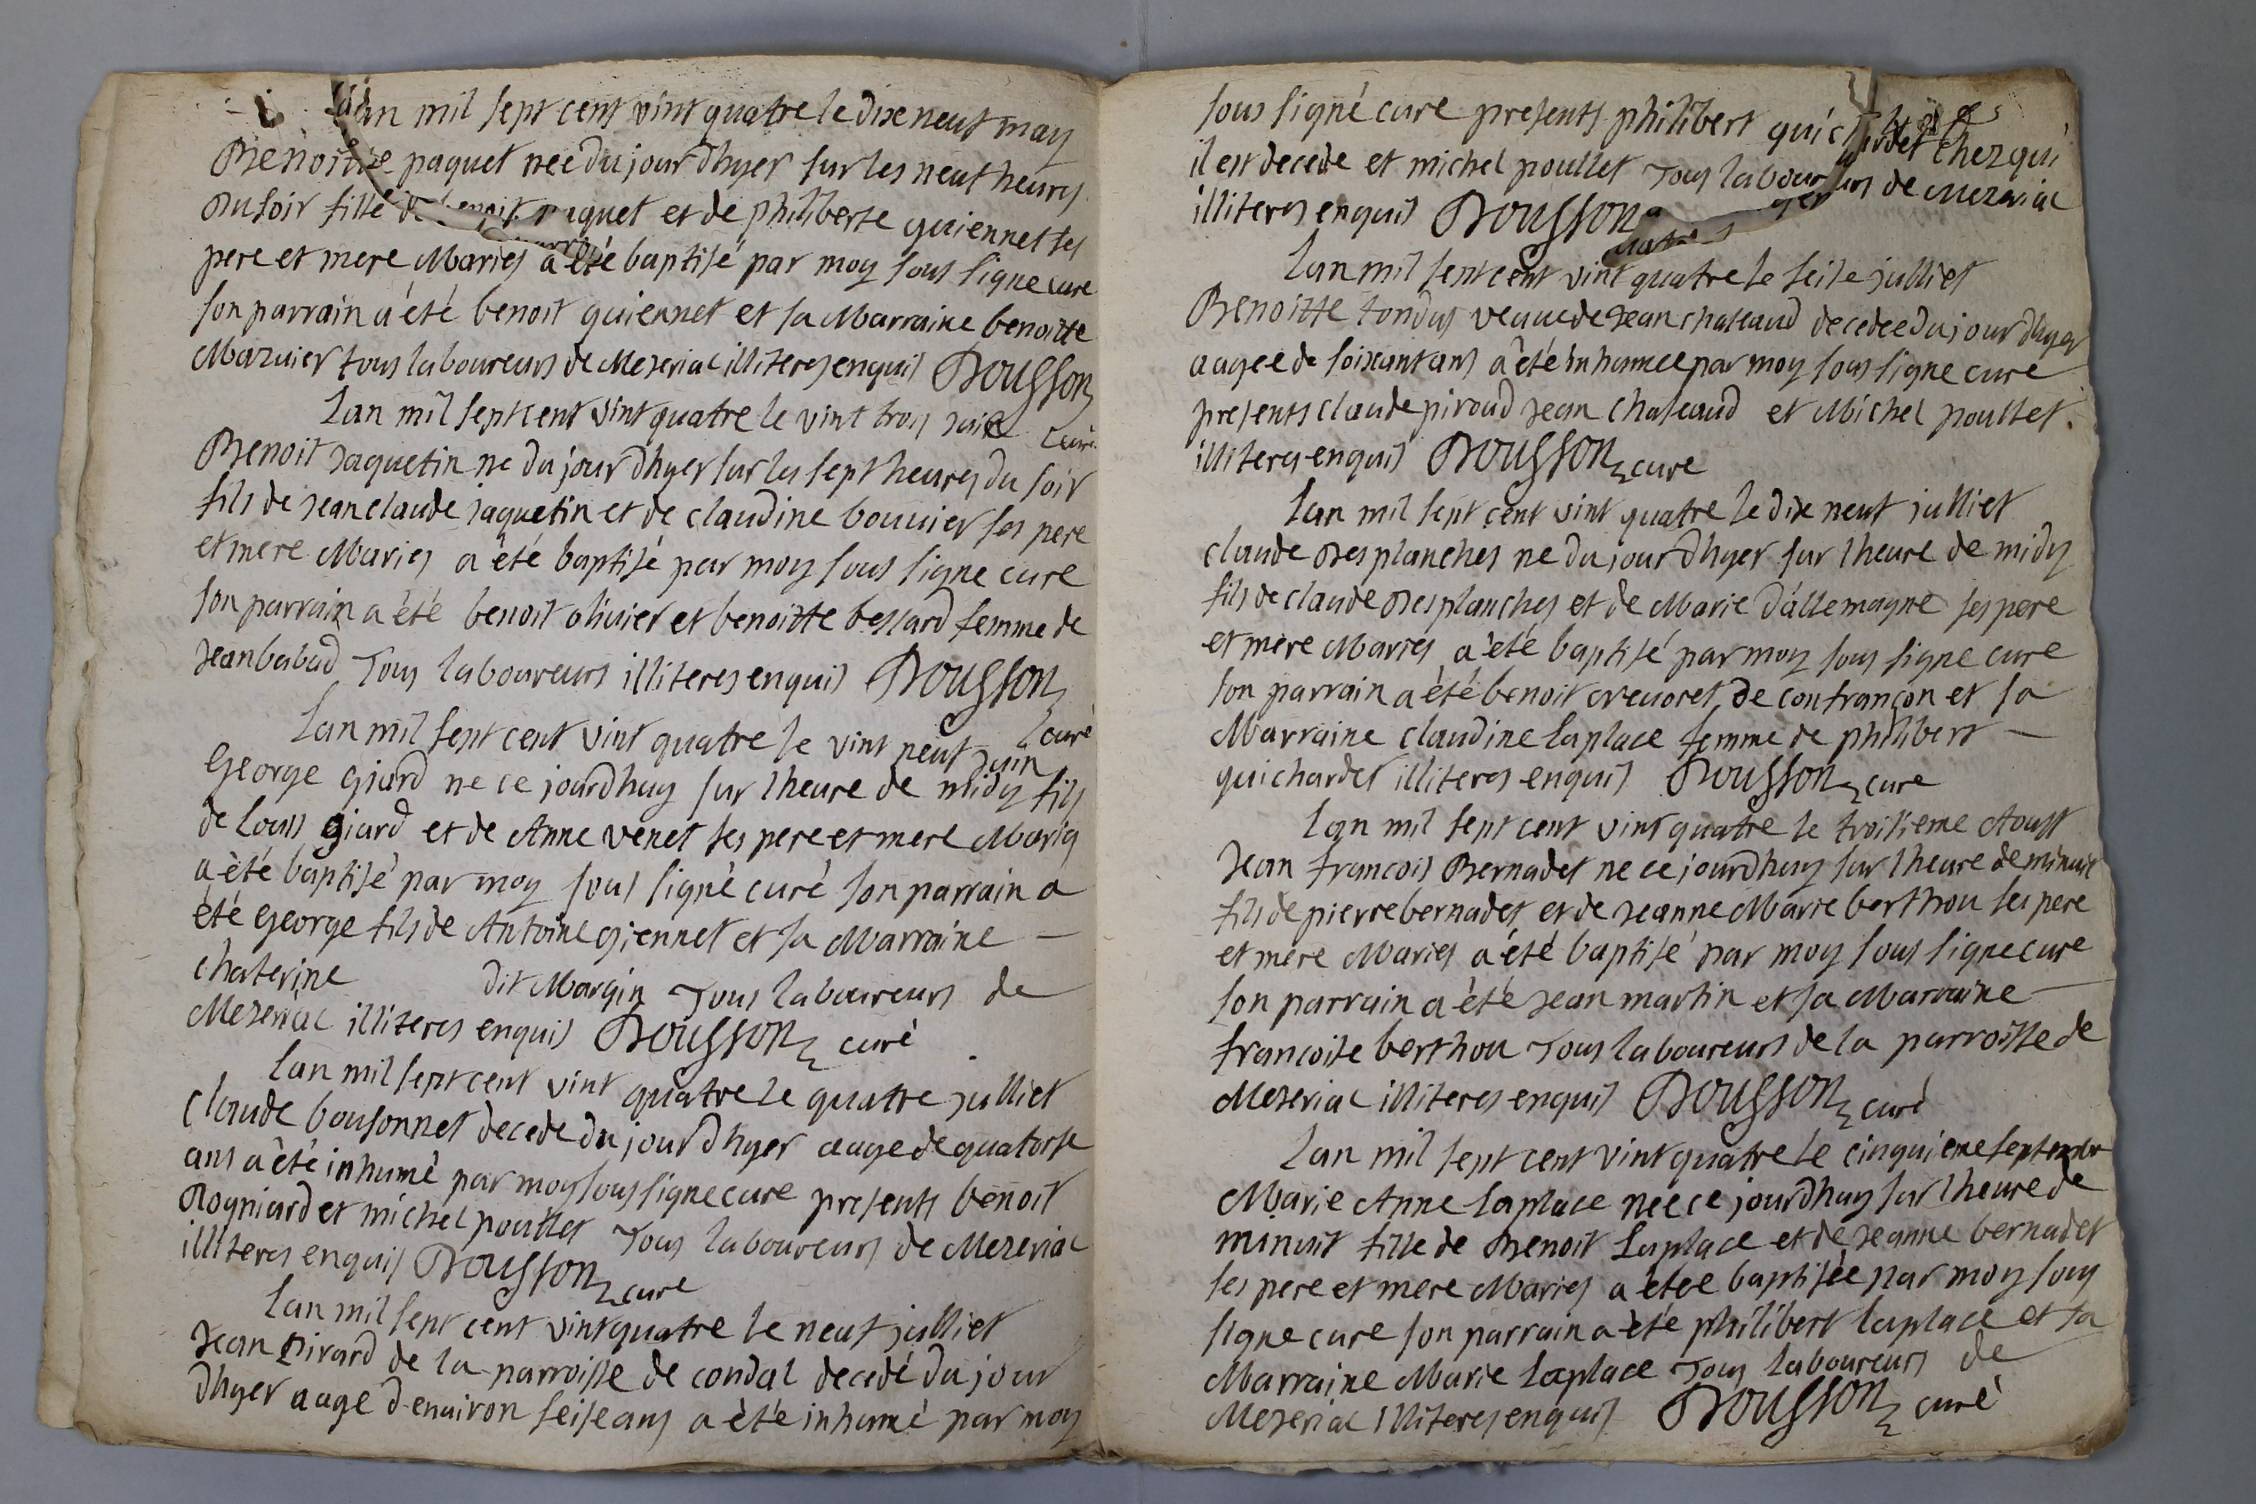 Lan mil sept cent vint quatre le dixe neuf may
Benoitte paquet nee du jour dhyer sur les neuf heures
du soir fille de benoit paquet et de philiberte guiennet ses
pere et mere Maries a été baptisé par moy sous signe cure
son parrain a été benoit guiennet et sa Marraine benoitte
Mazuier tous laboureurs de Meseriac illiteres enquis Dousson
curé
Lan mil sept cent vint quatre le vint trois juin
Benoit Jaquetin ne du jour dhyer sur les sept heures du soir
fils de Jean claude jaquetin et de claudine bouvier ses pere
et mere Maries a été baptisé par moy sous signe cure
son parrain a été benoit olivier et benoitte bessard femme de
Jean babad Tous laboureurs illiteres enquis Dousson
curé
Lan mil sept cent vint quatre le vint neuf juin
George Giard ne ce jourdhuy sur lheure de midy fils
de Louis giard et de Anne venet ses pere et mere Maries
a été baptisé par moy sous signé curé son parrain a
été George fils de Antoine giennet et sa Marraine —
chaterine dit Margin Tous laboureurs de
Meseriac illiteres enquis Dousson curé
Lan mil sept cent vint quatre le quatre julliet
Claude bousonnet decede du jour dhyer aage de quatorse
ans a été inhumé par moy sous signe cure presents benoit
Rogniard et michel poullet Tous laboureurs de Meseriac
illiteres enquis Dousson cure
Lan mil sept cent vint quatre le neuf julliet
Jean Pirard de la parroisse de condal decedé du jour
dhyer aage d'environ seise ans a été inhumé par moy
sous signé cure presents philibert guichardet chez qui
il est decede et michel poullet Tous laboureurs de Meseriac
illiteres enquis Dousson
Lan mil sept cent vint quatre le seise julliet
Benoitte tondus veuve de Jean chateaud decedee du jour dhyer
aagee de soixant ans a été inhumee par moy sous signe cure
presents claude piroud Jean chateaud et Michel poullet
illiteres enquis Dousson cure
Lan mil sept cent vint quatre le dixe neuf julliet
claude desplanches ne du jour dhyer sur lheure de midy
fils de claude desplanches et de Marie d'allemagne ses pere
et mere Maries a été baptisé par moy sous signe cure
son parrain a été benoit crevoret de confrançon et sa
Marraine claudine laplace femme de philibert —
guichardet illiteres enquis Dousson cure
Lan mil sept cent vint quatre le troisieme Aoust
Jean francois Bernadet ne ce jourdhuy sur lheure de minuit
fils de pierre bernadet et de Jeanne Marie berthou ses pere
et mere Maries a été baptisé par moy sous signe cure
son parrain a été Jean martin et sa Marraine —
francoise berthou Tous laboureurs de la parroisse de
Meseriac illiteres enquis Dousson curé
Lan mil sept cent vint quatre le cinquieme septembre
Marie Anne Laplace nee ce jourdhuy sur lheure de
minuit fille de Benoit Laplace et de Jeanne bernadet
ses pere et mere Maries a étee baptisée par moy sous
signe cure son parrain a été philibert laplace et sa
Marraine Marie Laplace Tous laboureurs de
Meseriac illiteres enquis Dousson curé